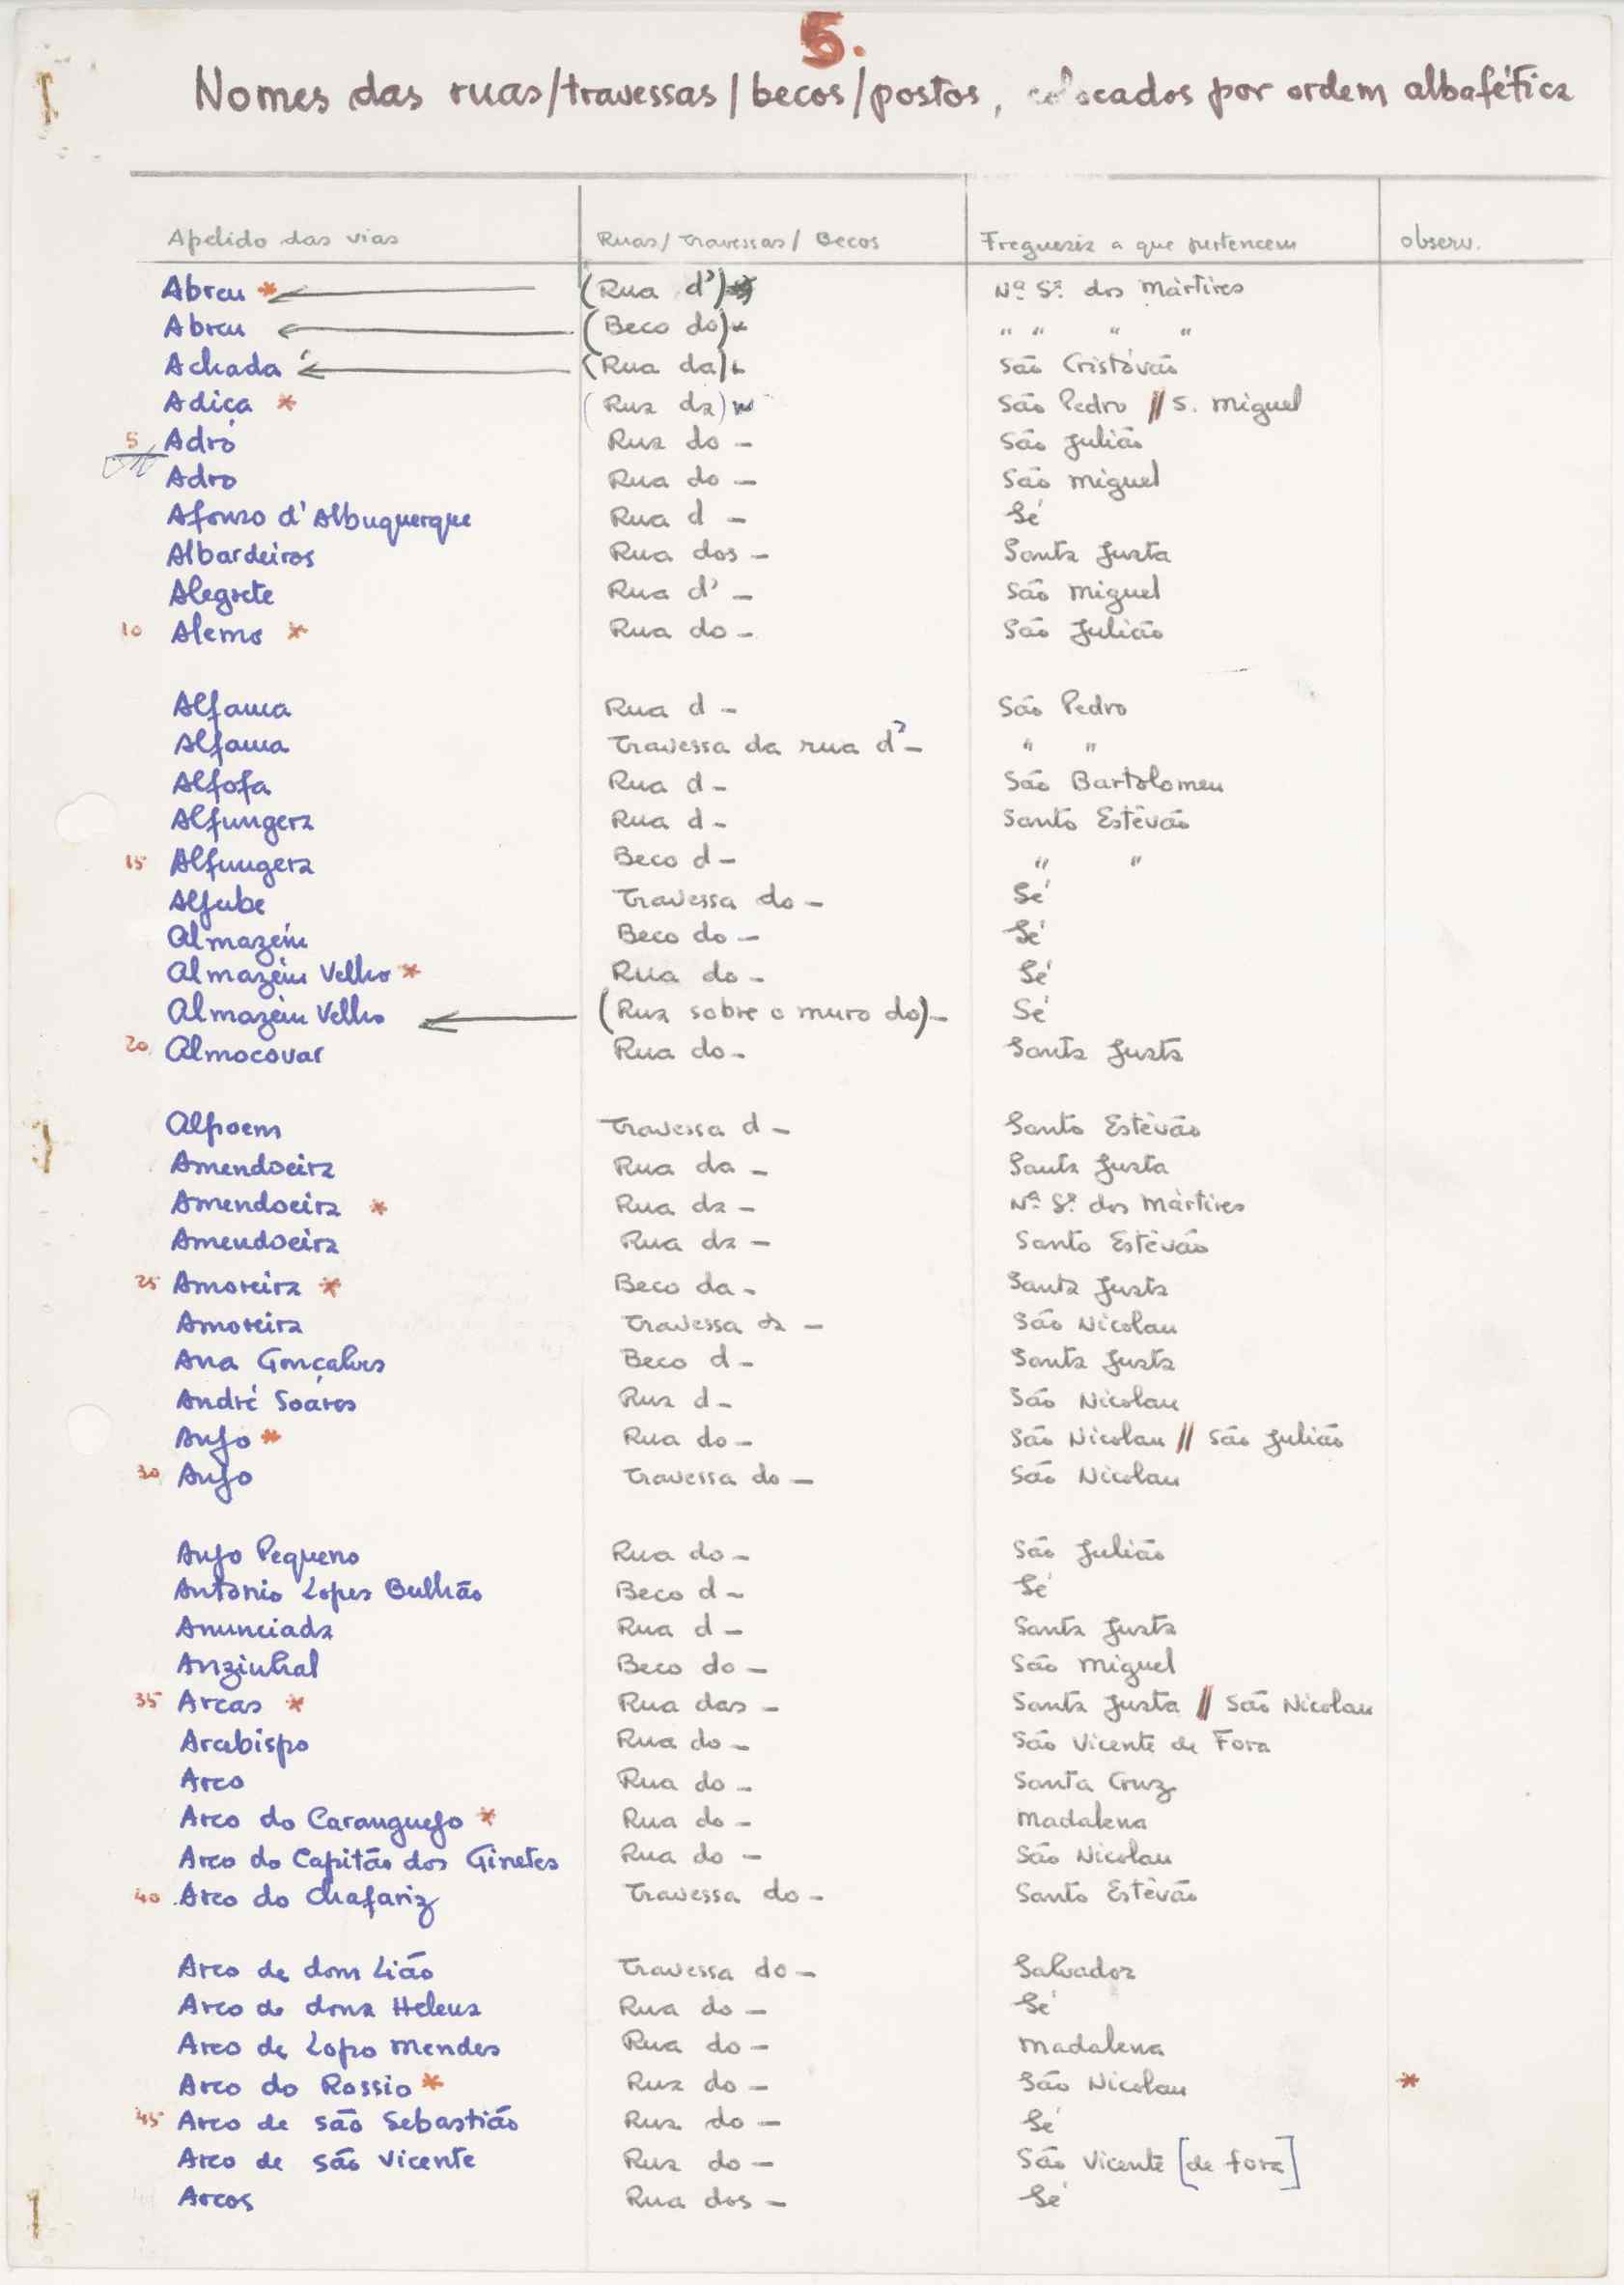 5.
Nomes das ruas/travessas/becos/postos, colocados por ordem albafética
Apelido das vias Ruas/Travessas/Becos Freguezia a que pertencem observ.
Abreu * (Rua d') Nª Sª dos Mártires
Abreu (Beco do) " " " "
Achada (Rua da) São Cristóvão
Adiça * (Rua da) São Pedro // S. Miguel
5 Adro Rua do - São Julião
Adro Rua do - São Miguel
Afonso d'Albuquerque Rua d - Sé
Albardeiros Rua dos - Santa Justa
Alegrete Rua d' - São Miguel
10 Alemo * Rua do - São Julião
Alfama Rua d - São Pedro
Alfama Travessa da rua d'- " "
Alfofa Rua d - São Bartolomeu
Alfungera Rua d - Santo Estêvão
15 Alfungera Beco d - " "
Aljube Travessa do - Sé
Almazém Beco do - Sé
Almazém Velho * Rua do - Sé
Almazém Velho (Rua sobre o muro do)- Sé
20 Almocovar Rua do - Santa Justa
Alpoem Travessa d - Santo Estêvão
Amendoeira Rua da - Santa Justa
Amendoeira * Rua da - Nª Sª dos Mártires
Amendoeira Rua da - Santo Estêvão
25 Amoreira * Beco da - Santa Justa
Amoreira Travessa da - São Nicolau
Ana Gonçalves Beco d - Santa Justa
André Soáres Rua d - São Nicolau
Anjo * Rua do - São Nicolau // São Julião
30 Anjo Travessa do - São Nicolau
Anjo Pequeno Rua do - São Julião
António Lopes Bulhão Beco d - Sé
Anunciada Rua d - Santa Justa
Anzinhal Beco do - São Miguel
35 Arcas * Rua das - Santa Justa // São Nicolau
Arcebispo Rua do - São Vicente de Fora
Arco Rua do - Santa Cruz
Arco do Caranguejo * Rua do - Madalena
Arco do Capitão dos Ginetes Rua do - São Nicolau
40 Arco do Chafariz Travessa do - Santo Estêvão
Arco de dom Lião Travessa do - Salvador
Arco de dona Helena Rua do - Sé
Arco de Lopo Mendes Rua do - Madalena
Arco do Rossio * Rua do - São Nicolau *
45 Arco de são Sebastião Rua do - Sé
Arco de são Vicente Rua do - São Vicente [de fora]
Arcos Rua dos - Sé